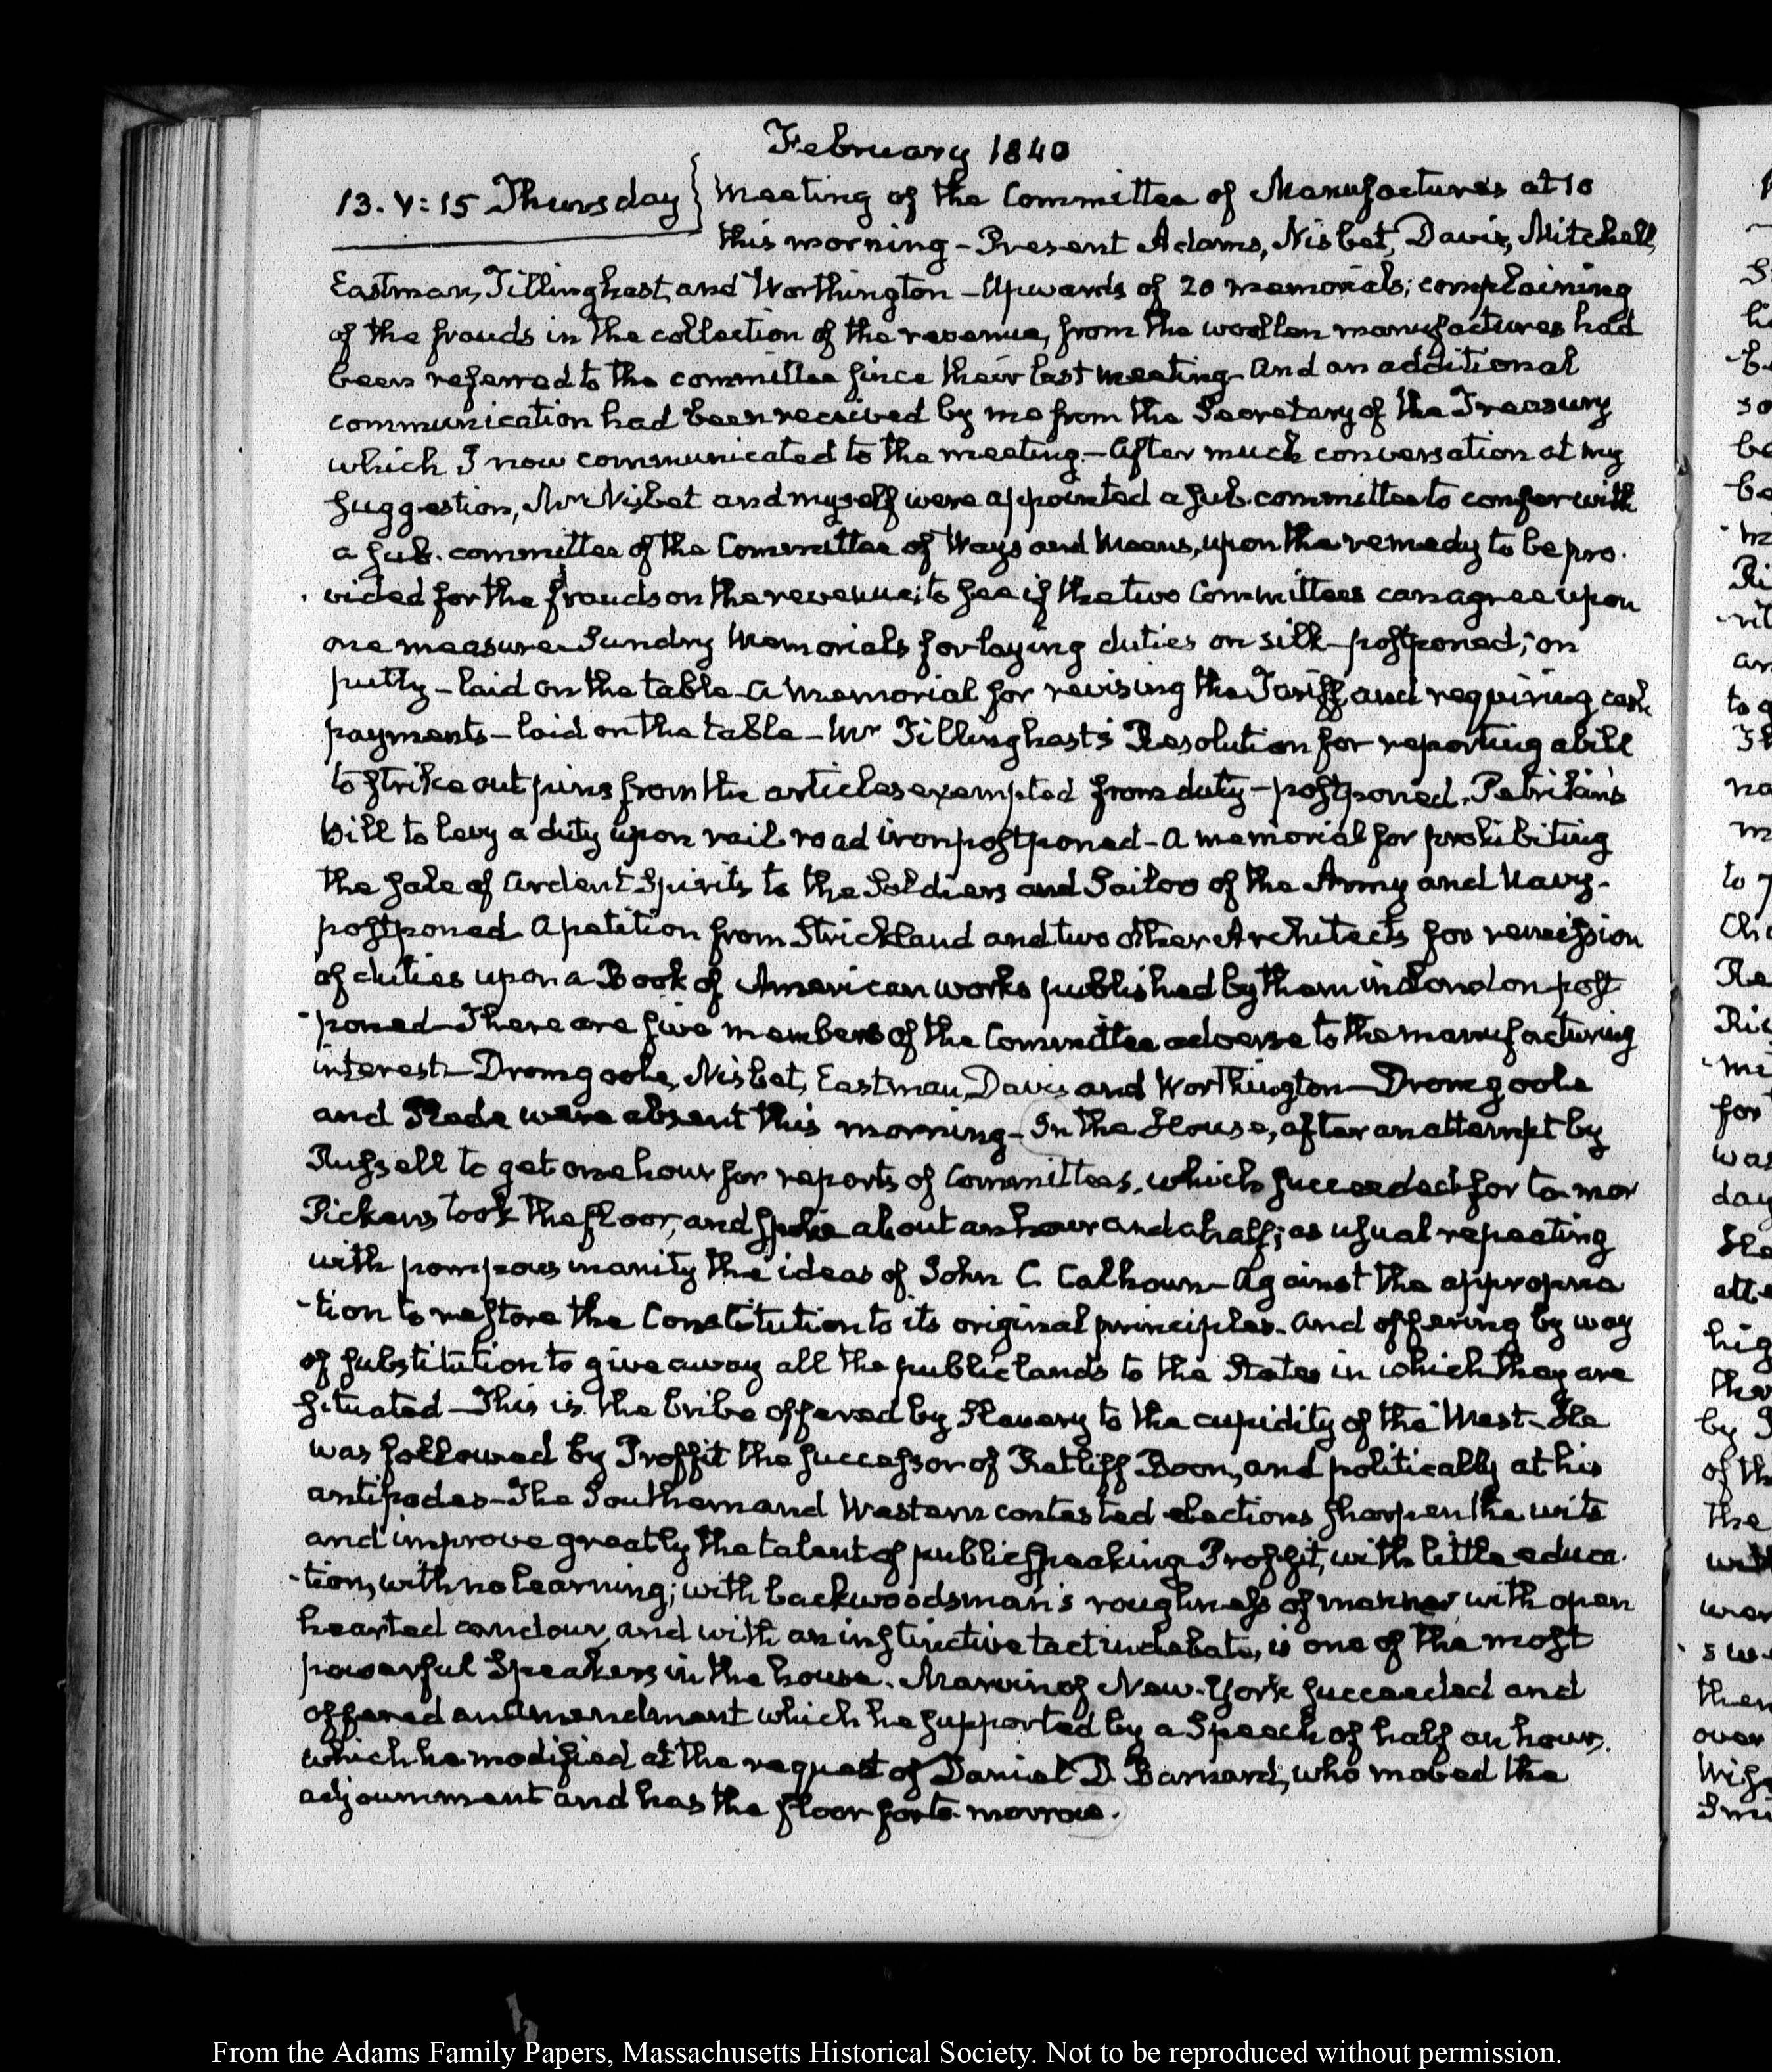 February 1840
13. V:15 Thursday } Meeting of the Committee of Manufactures at 10
this morning - Present Adams, Nisbet, Davis, Mitchell,
Eastman, Tillinghast, and Worthington - Upwards of 20 memorials; complaining
of the frauds in the collection of the revenue, from the woollen manufactures had
been referred to the committee since their last meeting - And an additional
communication had been received by me from the Secretary of the Treasury
which I now communicated to the meeting. - After much conversation at my
suggestion, Mr Nisbet and myself were appointed a sub. committee to confer with
a sub. committee of the Committee of Ways and Means, upon the remedy to be pro.
vided for the frauds on the revenue; to see if the two Committees can agree upon
one measure - Sundry Memorials for laying duties on silk - postponed; on
putty - laid on the table - A Memorial for revising the Tariff, and requiring cash
payments - laid on the table - Mr Tillinghast's Resolution for reporting a bill
to strike out pins from the articles exempted from duty - postponed. Petrikin's
Bill to levy a duty upon rail road iron postponed - A memorial for prohibiting
the sale of Ardent Spirits to the Soldiers and Sailors of the Army and Navy -
postponed - A petition from Strickland and two other Architects for remission
of duties upon a Book of American works published by them in London post
-poned - There are five members of the Committee adverse to the manufacturing
interest - Dromgoole, Nisbet, Eastman, Davis and Worthington - Dromgoole
and Slade were absent this morning - In the House, after an attempt by
Russell to get one hour for reports of Committees, which succeeded for to-mor
Pickens took the floor, and spoke about an hour and a half; as usual repeating
with pompous inanity the ideas of John C. Calhoun - Against the appropria
-tion to restore the Constitution to its original principles. And offering by way
of substitution to give away all the public lands to the States in which they are
situated - This is the bribe offered by Slavery to the cupidity of the West - He
was followed by Proffit the successor of Ratliff Boon, and politically at his
antipodes - The Southern and Western contested elections sharpen the wits
and improve greatly the talent of public speaking - Proffit, with little educa.
-tion, with no learning; with backwoodsman's roughness of manner, with open
hearted candour, and with an instinctive tact in debate, is one of the most
powerful Speakers in the house. Marvin of New-York succeeded and
offered an Amendment which he supported by a Speech of half an hour.
which he modified at the request of Daniel D. Barnard, who moved the
adjournment and has the floor for to-morrow.
From the Adams Family Papers, Massachusetts Historical Society. Not to be reproduced without permission.